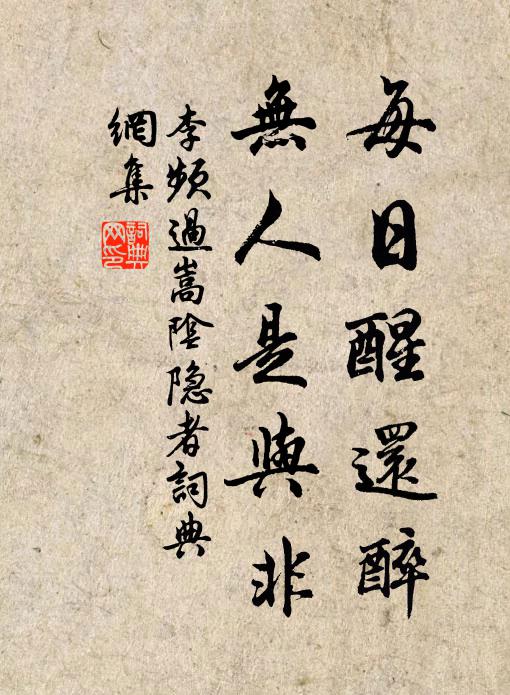 每日醒還醉
無人是與非
李頻過嵩陰隐者詞典
網集
詞典
网印